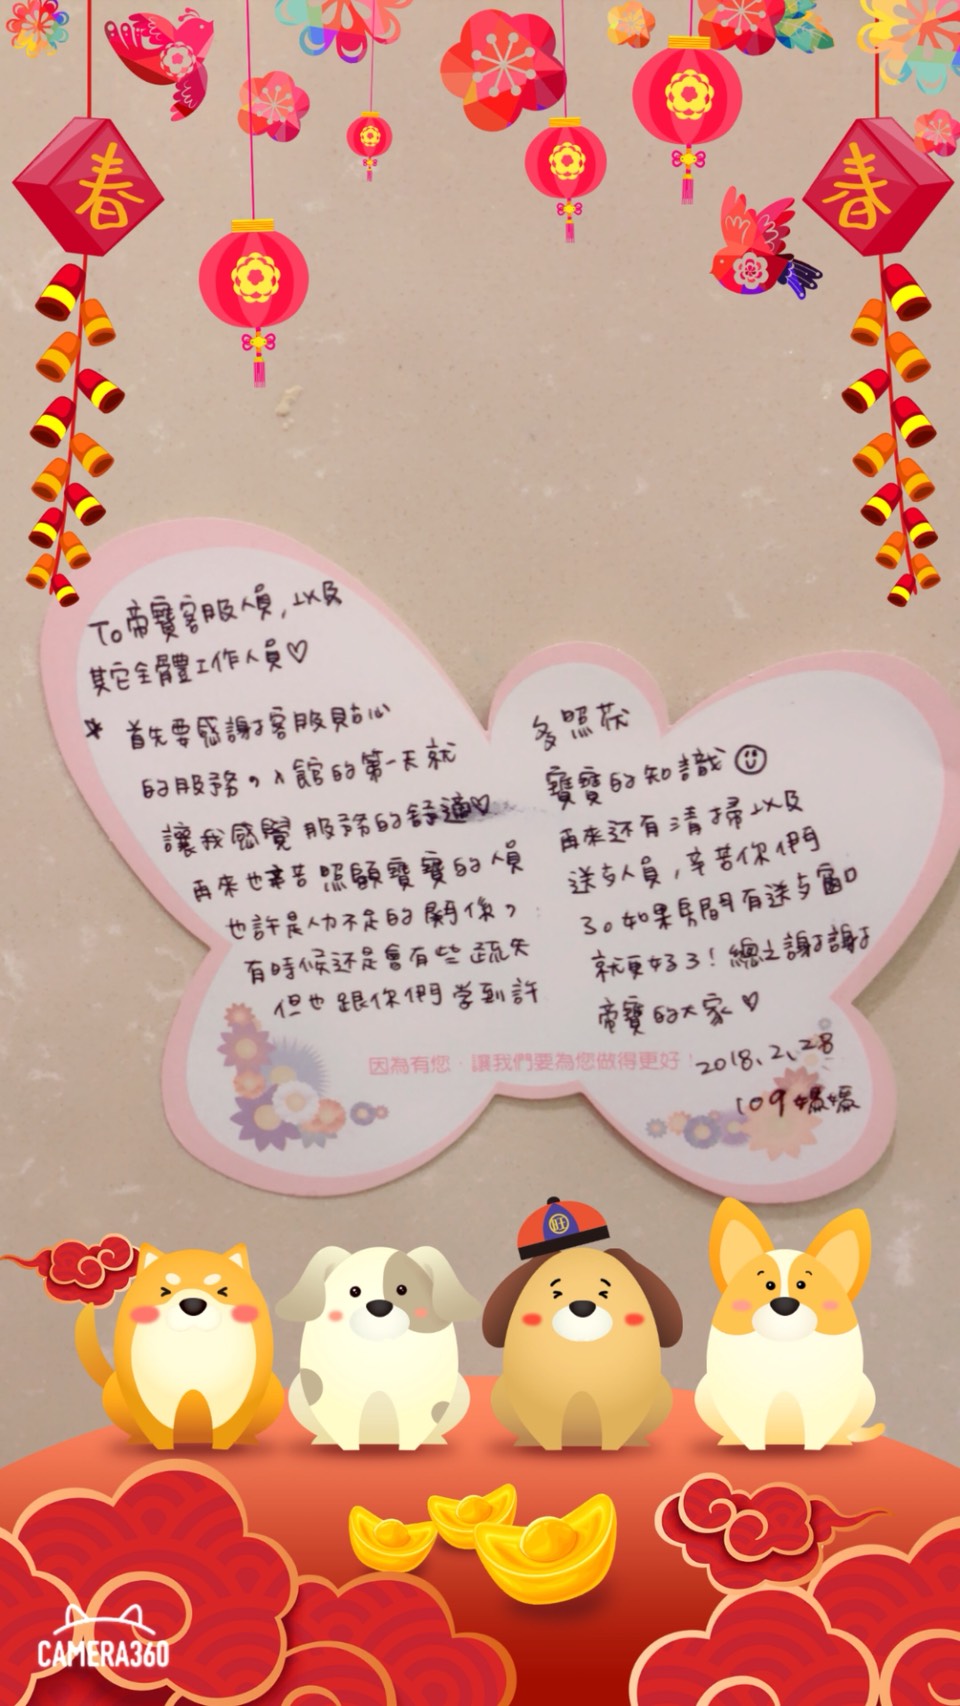 春
春
To帝寶客服人員,以及
其它全體工作人員♡
* 首先要感謝客服貼心
的服務,入館的第一天就
讓我感覺服務的舒適♡
再來也辛苦照顧寶寶的人員
也許是人力不足的關係,
有時候還是會有些疏失
但也跟你們学到許
多照茯
寶寶的知識☺
再來還有清掃以及
送歺人員,辛苦你們
了。如果房間有送歺窗口
就更好了!總之謝謝
帝寶的大家♡
2018.2.28
109
因為有您‧讓我們要為您做得更好!
旺
CAMERA360